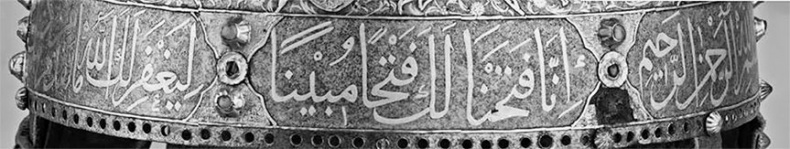 الله الرحمن الرحيم إنا فتحنا لك فتحا مبينا ليغفر لك الله ما